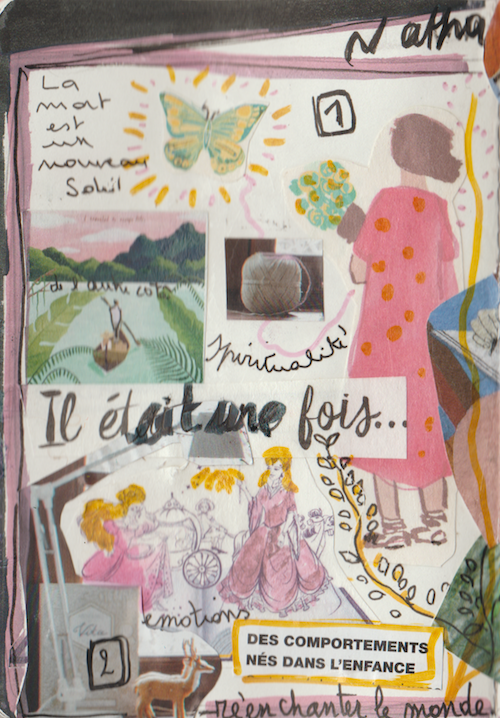 Natha
La
mort
est
un
nouveau
Soleil
1
de l'autre côté
Spiritualité
Il était une fois...
émotions
DES COMPORTEMENTS
NÉS DANS L'ENFANCE
2
réenchanter le monde.